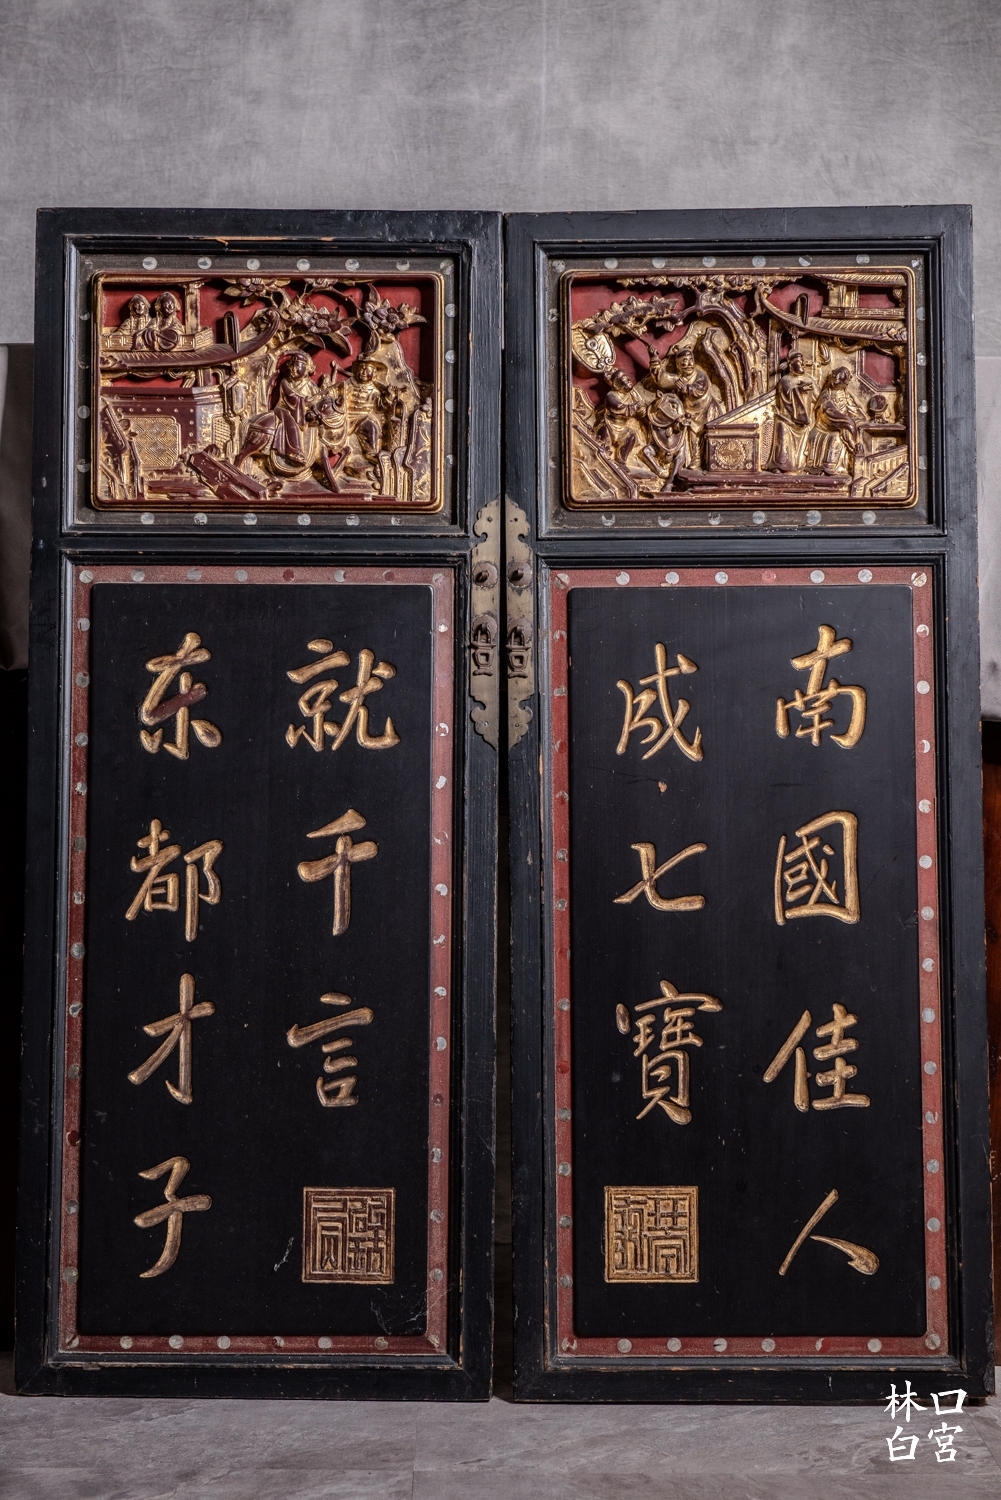 南國佳人
成七寶
就千言
东都才子
林口
白宮